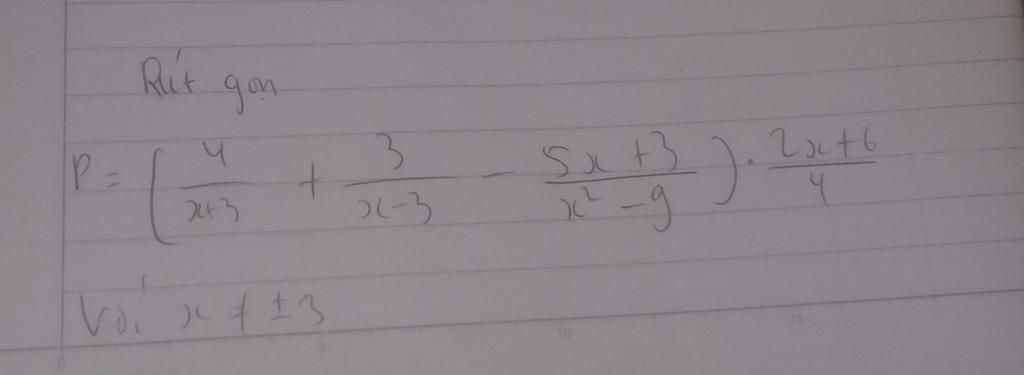 Rút gọn
P = ( 4/(x+3) + 3/(x-3) - (5x+3)/(x² - 9) ) . (2x+6)/4
Với x ≠ ±3
0 5 10 15